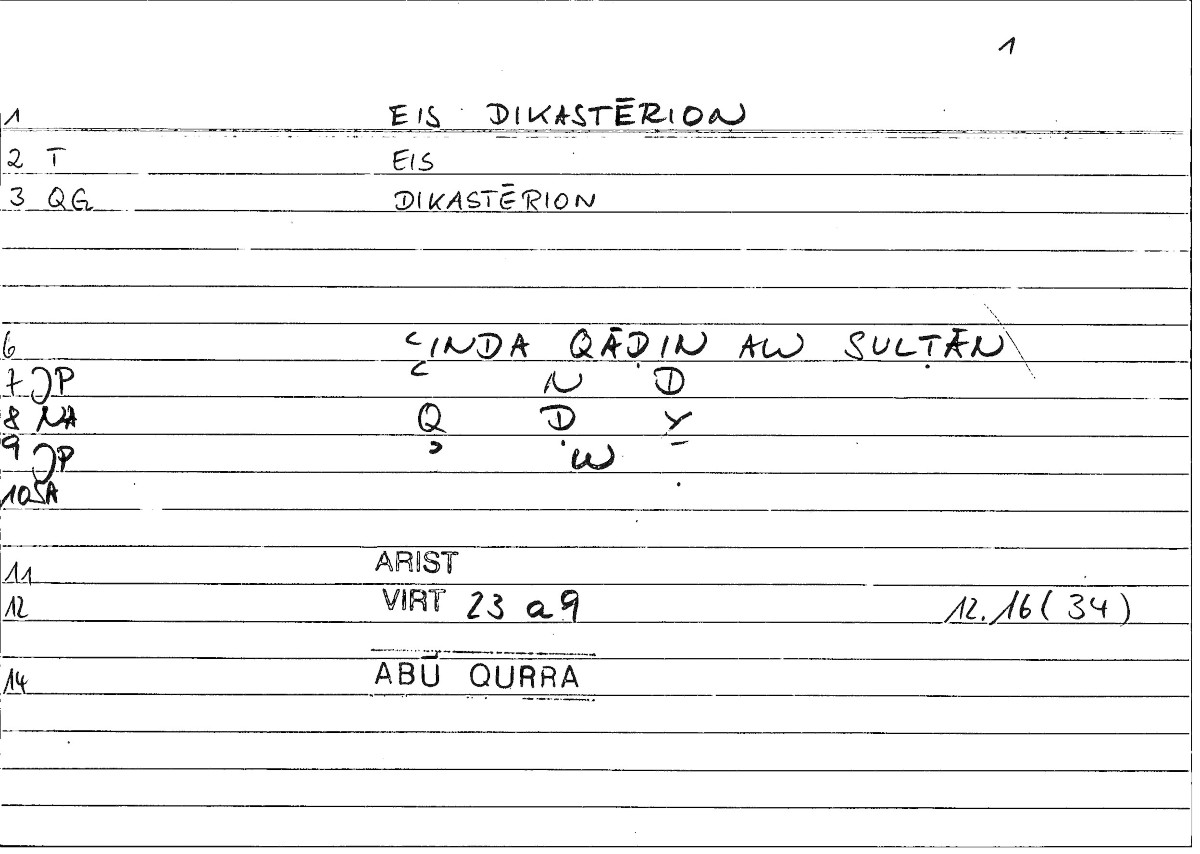 1
1 EIS DIKASTĒRION
2 T EIS
3 QG DIKASTĒRION
6 ʿINDA QĀḌIN AW SULṬĀN
7 JP ʿ N D
8 NA Q Ḍ Y
9 JP ʾ W –
10 SA
11 ARIST
12 VIRT 23 a 9 12.16 (34)
14 ABŪ QURRA